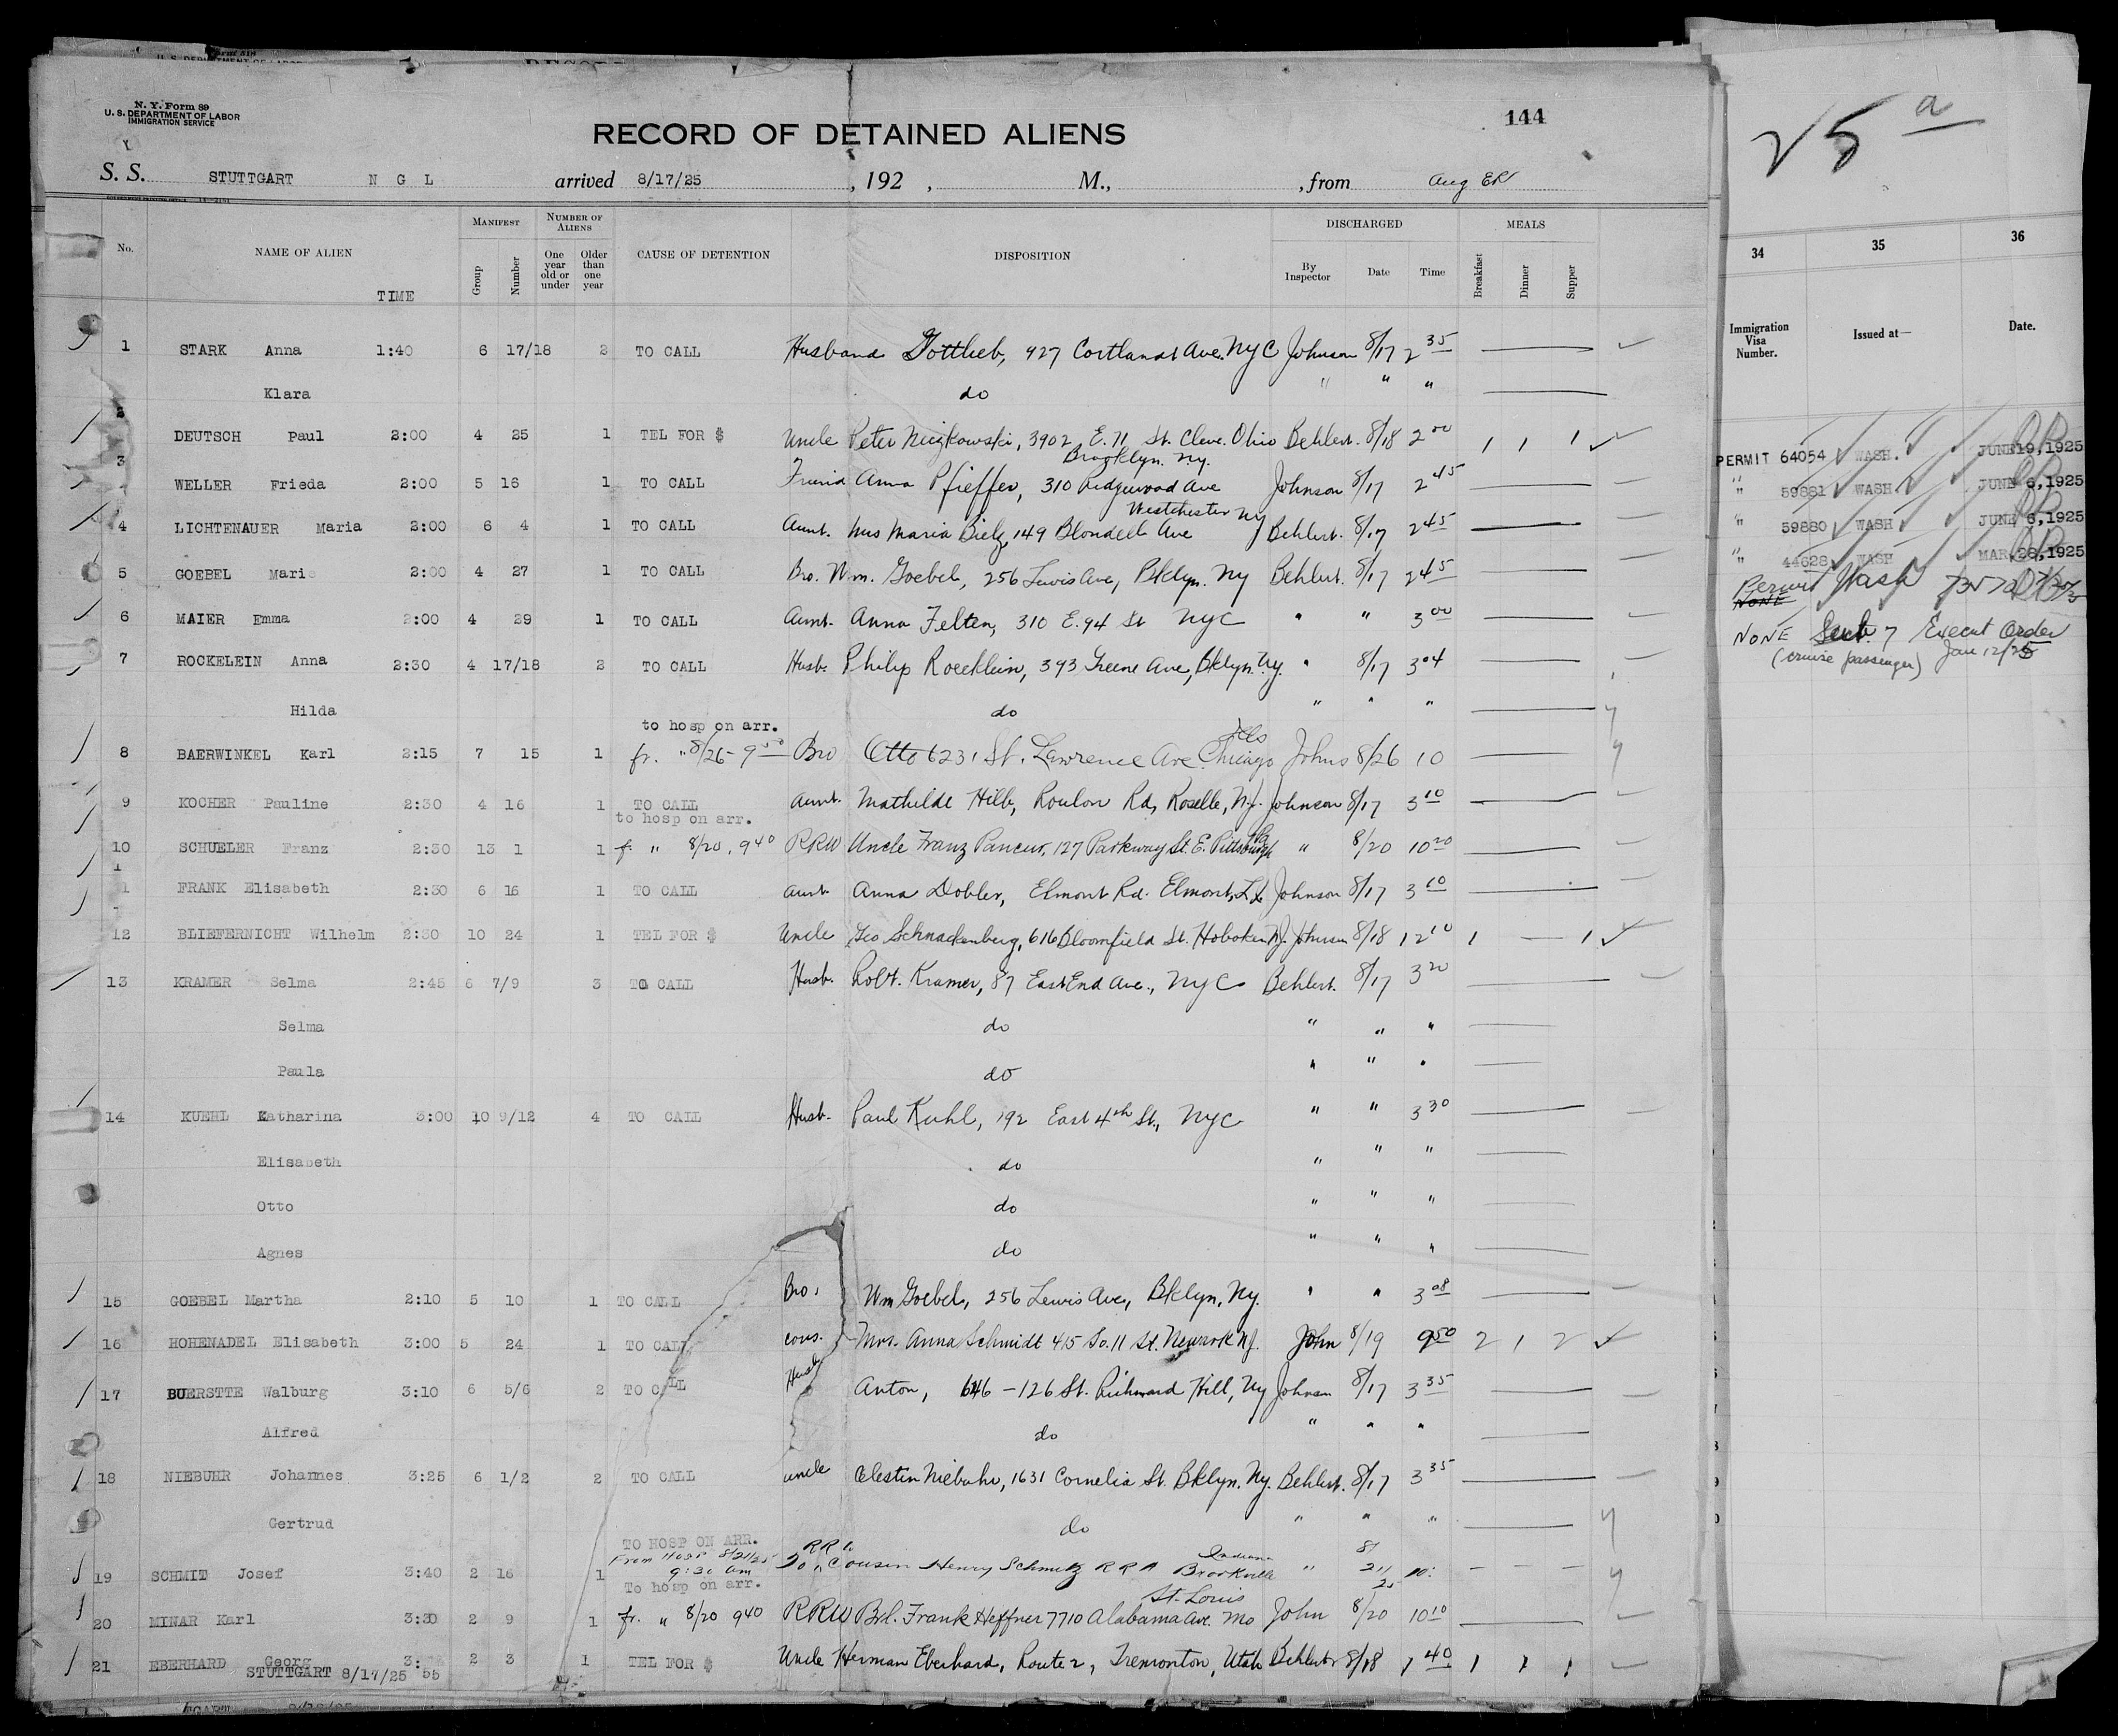 N. Y. Form 89
U. S. DEPARTMENT OF LABOR
IMMIGRATION SERVICE
RECORD OF DETAINED ALIENS
144
S. S. STUTTGART N G L arrived 8/17/25, 192 , M., , from
No. NAME OF ALIEN TIME MANIFEST Group Number NUMBER OF ALIENS One year old or under Older than one year CAUSE OF DETENTION DISPOSITION DISCHARGED By Inspector Date Time MEALS Breakfast Dinner Supper
1 STARK Anna 1:40 6 17/18 2 TO CALL Husband Gottlieb, 927 Cortlandt Ave. NYC Johnson 8/17 2 35
Klara do " " "
DEUTSCH Paul 2:00 4 25 1 TEL FOR $ Uncle Peter 3902 E. 71 St. Cleve. Ohio Behlert. 8/18 2 00 1 1 1
3 Brooklyn. N.Y.
WELLER Frieda 2:00 5 16 1 TO CALL Friend Anna Pfieffer, 310 Ridgewood Ave Johnson 8/17 2 45
Westchester NY
4 LICHTENAUER Maria 2:00 6 4 1 TO CALL Aunt. Mrs Maria 149 Blondell Ave Behlert. 8/17 2 45
5 GOEBEL Marie 2:00 4 27 1 TO CALL Bro. Wm. Goebel, 256 Lewis Ave, Bklyn. Ny Behlert. 8/17 2 45
6 MAIER Emma 2:00 4 29 1 TO CALL Aunt. Anna Felten, 310 E. 94 St NYC " " 3 00
7 ROCKELEIN Anna 2:30 4 17/18 2 TO CALL Husb. Philip Rocklein, 393 Greene Ave, Bklyn. Ny. " 8/17 3 04
Hilda do " " "
to hosp on arr.
8 BAERWINKEL Karl 2:15 7 15 1 fr. " 8/26 - 9 50 Bro Otto 6231 St. Lawrence Ave Chicago Ills Johns 8/26 10
9 KOCHER Pauline 2:30 4 16 1 TO CALL Aunt. Mathilde Hilb, Rd, Roselle, N.J. Johnson 8/17 3 10
to hosp on arr.
10 SCHUELER Franz 2:30 13 1 1 f. " 8/20. 9 40 RRW Uncle Franz 127 Parkway St. E. Pittsburgh Pa " 8/20 10 20
FRANK Elisabeth 2:30 6 16 1 TO CALL aunt Anna Dobler, Elmont Rd. Elmont, L.I. Johnson 8/17 3 10
12 BLIEFERNICHT Wilhelm 2:30 10 24 1 TEL FOR $ Uncle Geo Schnackenberg, 616 Bloomfield St. Hoboken NJ. Johnson 8/18 12 10 1 — 1
13 KRAMER Selma 2:45 6 7/9 3 TO CALL Husb. Robt. Kramer, 87 East End Ave., NYC Behlert. 8/17 3 20
Selma do " " "
Paula do " " "
14 KUEHL Katharina 3:00 10 9/12 4 TO CALL Husb. Paul Kuhl, 192 East 4th St., NYC " " 3 30
Elisabeth do " " "
Otto do " " "
Agnes do " " "
15 GOEBEL Martha 2:10 5 10 1 TO CALL Bro. Wm Goebel, 256 Lewis Ave, Bklyn, Ny. " " 3 08
16 HOHENADEL Elisabeth 3:00 5 24 1 TO CALL cous. Mrs. Anna Schmidt 415 So. 11 St. Newark NJ. John 8/19 9 50 2 1 2
17 BUERSTTE Walburg 3:10 6 5/6 2 TO CALL Husb Anton, 646 - 126 St. Richmond Hill, Ny Johnson 8/17 3 35
Alfred do " " "
18 NIEBUHR Johannes 3:25 6 1/2 2 TO CALL uncle Celestin Niebuhr, 1631 Cornelia St. Bklyn. Ny. Behlert. 8/17 3 35
Gertrud do " " "
TO HOSP ON ARR.
From Hosp 8/21/25
9:30 am
19 SCHMIT Josef 3:40 2 16 1 To Cousin Henry Schmitz R R A Brookville Indiana " 8/21/25 10:
To hosp on arr.
20 MINAR Karl 3:30 2 9 1 fr. " 8/20 9 40 RRW Frank Heffner 7710 Alabama Ave. St. Louis Mo John 8/20 10 10
21 EBERHARD Georg 3:55 2 3 1 TEL FOR $ Uncle Herman Eberhard, Route 2, Tremonton, Utah Behlert 8/18 1 40 1 1 1
STUTTGART 8/17/25
25 a
34 35 36
Immigration Visa Number. Issued at— Date.
PERMIT 64054 WASH. JUNE 19, 1925
" 59881 WASH JUNE 6, 1925
" 59880 WASH JUNE 6, 1925
" 44628 WASH MAR. 28, 1925
Permit Wash
NONE
NONE Sect. 7 Execut Order
(cruise passenger) Jan 12/25